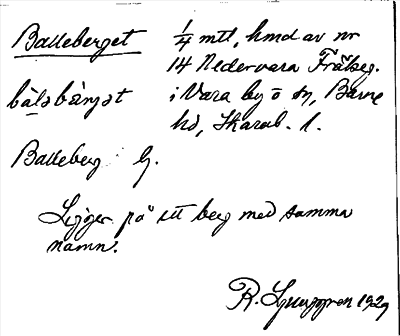 Balleberget 1/4 mtl, hmd av nr
14 Nedervara Frälseg.
i Vara by o sn, Barne
hd, Skarab. l.
Balleberg G.
Ligger på ett berg med samma
namn.
R. Ljunggren 1929